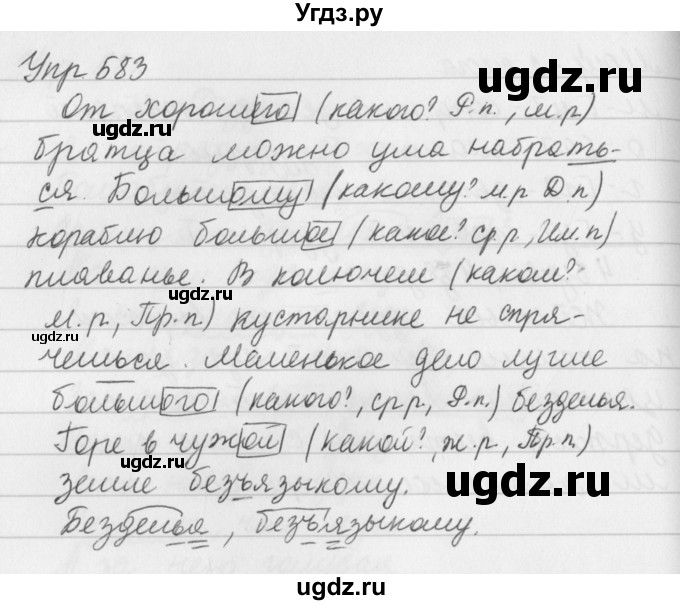 Угдз.ру
Упр 583
ugdz.ru
От хорошего (какого? Р.п., м.р)
ugdz.ru
братца можно ума набрать-
ся. Большому (какому? м.р Д.п)
кораблю большое (какое? ср.р, Им.п)
плаванье. В колючем (каком?
ugdz.ru
м.р., Пр.п) кустарнике не спря-
ugdz.ru
чешься. Маленькое дело лучше
большого (какого?, ср.р, Р.п.) безделья.
Горе в чужой (какой?, ж.р, Пр.п)
ugdz.ru
земле безъязыкому.
ugdz.ru
Безделья, безъязыкому.
ugdz.ru